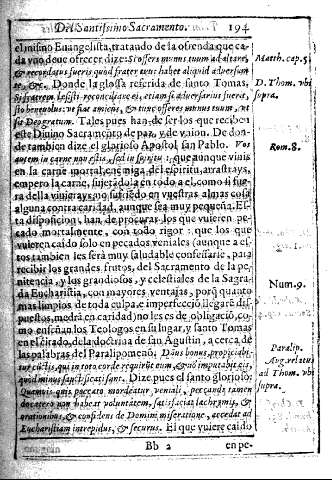 Del Santissimo Sacramento. 194
el mismo Euangelista, tratando de la ofrenda que ca-
da vno deue ofrecer, dize: Si offers munus tuum ad altare,
& recordatus fueris quod frater tuus habet aliquid aduersum
te, &c. Donde la glossa referida de santo Tomas,
Si fratrem læsisti reconciliare ei, etiam si aduersarius fueris,
sis beneuolus: ne sas amicus, & tunc offeres munus tuum, ut
sit Deo gratum. Tales pues han de ser los que reciben
este Diuino Sacramento de paz, y de vnion. De don-
de tambien dize el glorioso Apostol san Pablo. Vos
autem in carne non estis, sed in spiritu: que aunque viuis
en la carne mortal, enemiga del espiritu, arrastrays,
empero la carne, sujetãdola en todo a el, como si fue-
ra della viniessays, no sufriẽdo en vuestras almas cosa
alguna contra caridad, aunque sea muy pequeña. Es-
ta disposicion, han de procurar los que vuieren pe-
cado mortalmente, con todo rigor: que los que
vuieren caido solo en pecados veniales (aunque a es-
tos tambien les será muy saludable confessarse, para
recibir los grandes frutos, del Sacramento de la pe-
nitencia, y los grandiosos, y celestiales de la Sagra-
da Eucharistia, con mayores ventajas, porq̃ quanto
mas limpios de toda culpa e imperfecciõ, llegarẽ dis-
puestos, medrã en caridad) no les es de obligaciõ, co-
mo enseñan los Teologos en su lugar, y santo Tomas
en el citado, de la doctrina de san Agustin, a cerca de
las palabras del Paralipomenõ. Dñus bonus propiciabi-
tur cũctis, qui in toto corde requirũt eum, & nõ imputabit eis,
quod minus sanctificati sunt. Dize pues el santo glorioso:
Quamuis quis peccato mordeatur veniali, peccandi tamen
de cætero non habeat voluntatem, satisfaciat lachrymis, &
orationibus, & confidens de Domini miseratione, accedat ad
Eucharistiam intrepidus, & securus. El que vuiere caido
Bb 2 en pe-
Matth. cap. 5.
D. Thom. vbi
supra.
Rom. 8.
Num. 9.
Paralip.
Aug. relatus
ad Thom. vbi
supra.